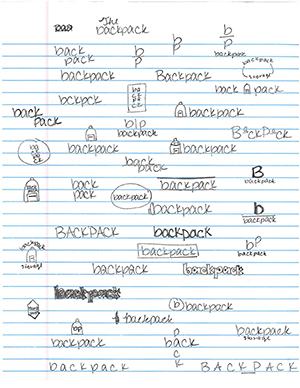 The
backpack
b
p
b
p
backpack
back
pack
b
p
backpack
backpack
storage
backpack
Backpack
bckpck
back pack
backpack
back
pack
b|p
backpack
BackPack
backpack
backpack
back
pack
backpack
B
backpack
back
pack
backpack
backpack
b
backpack
BACKPACK
backpack
backpack
storage
backpack
bp
backpack
backpack
backpack
backpack
b backpack
bp
backpack
backpack
storage
backpack
back
p
c
k
backpack
BACKPACK